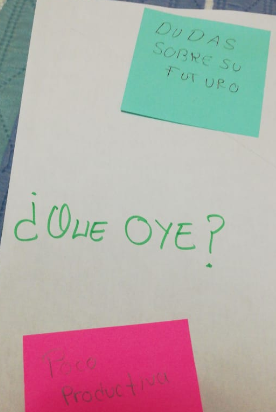 DUDAS
SOBRE SU
FUTURO
¿QUE OYE?
Poco
Productiva